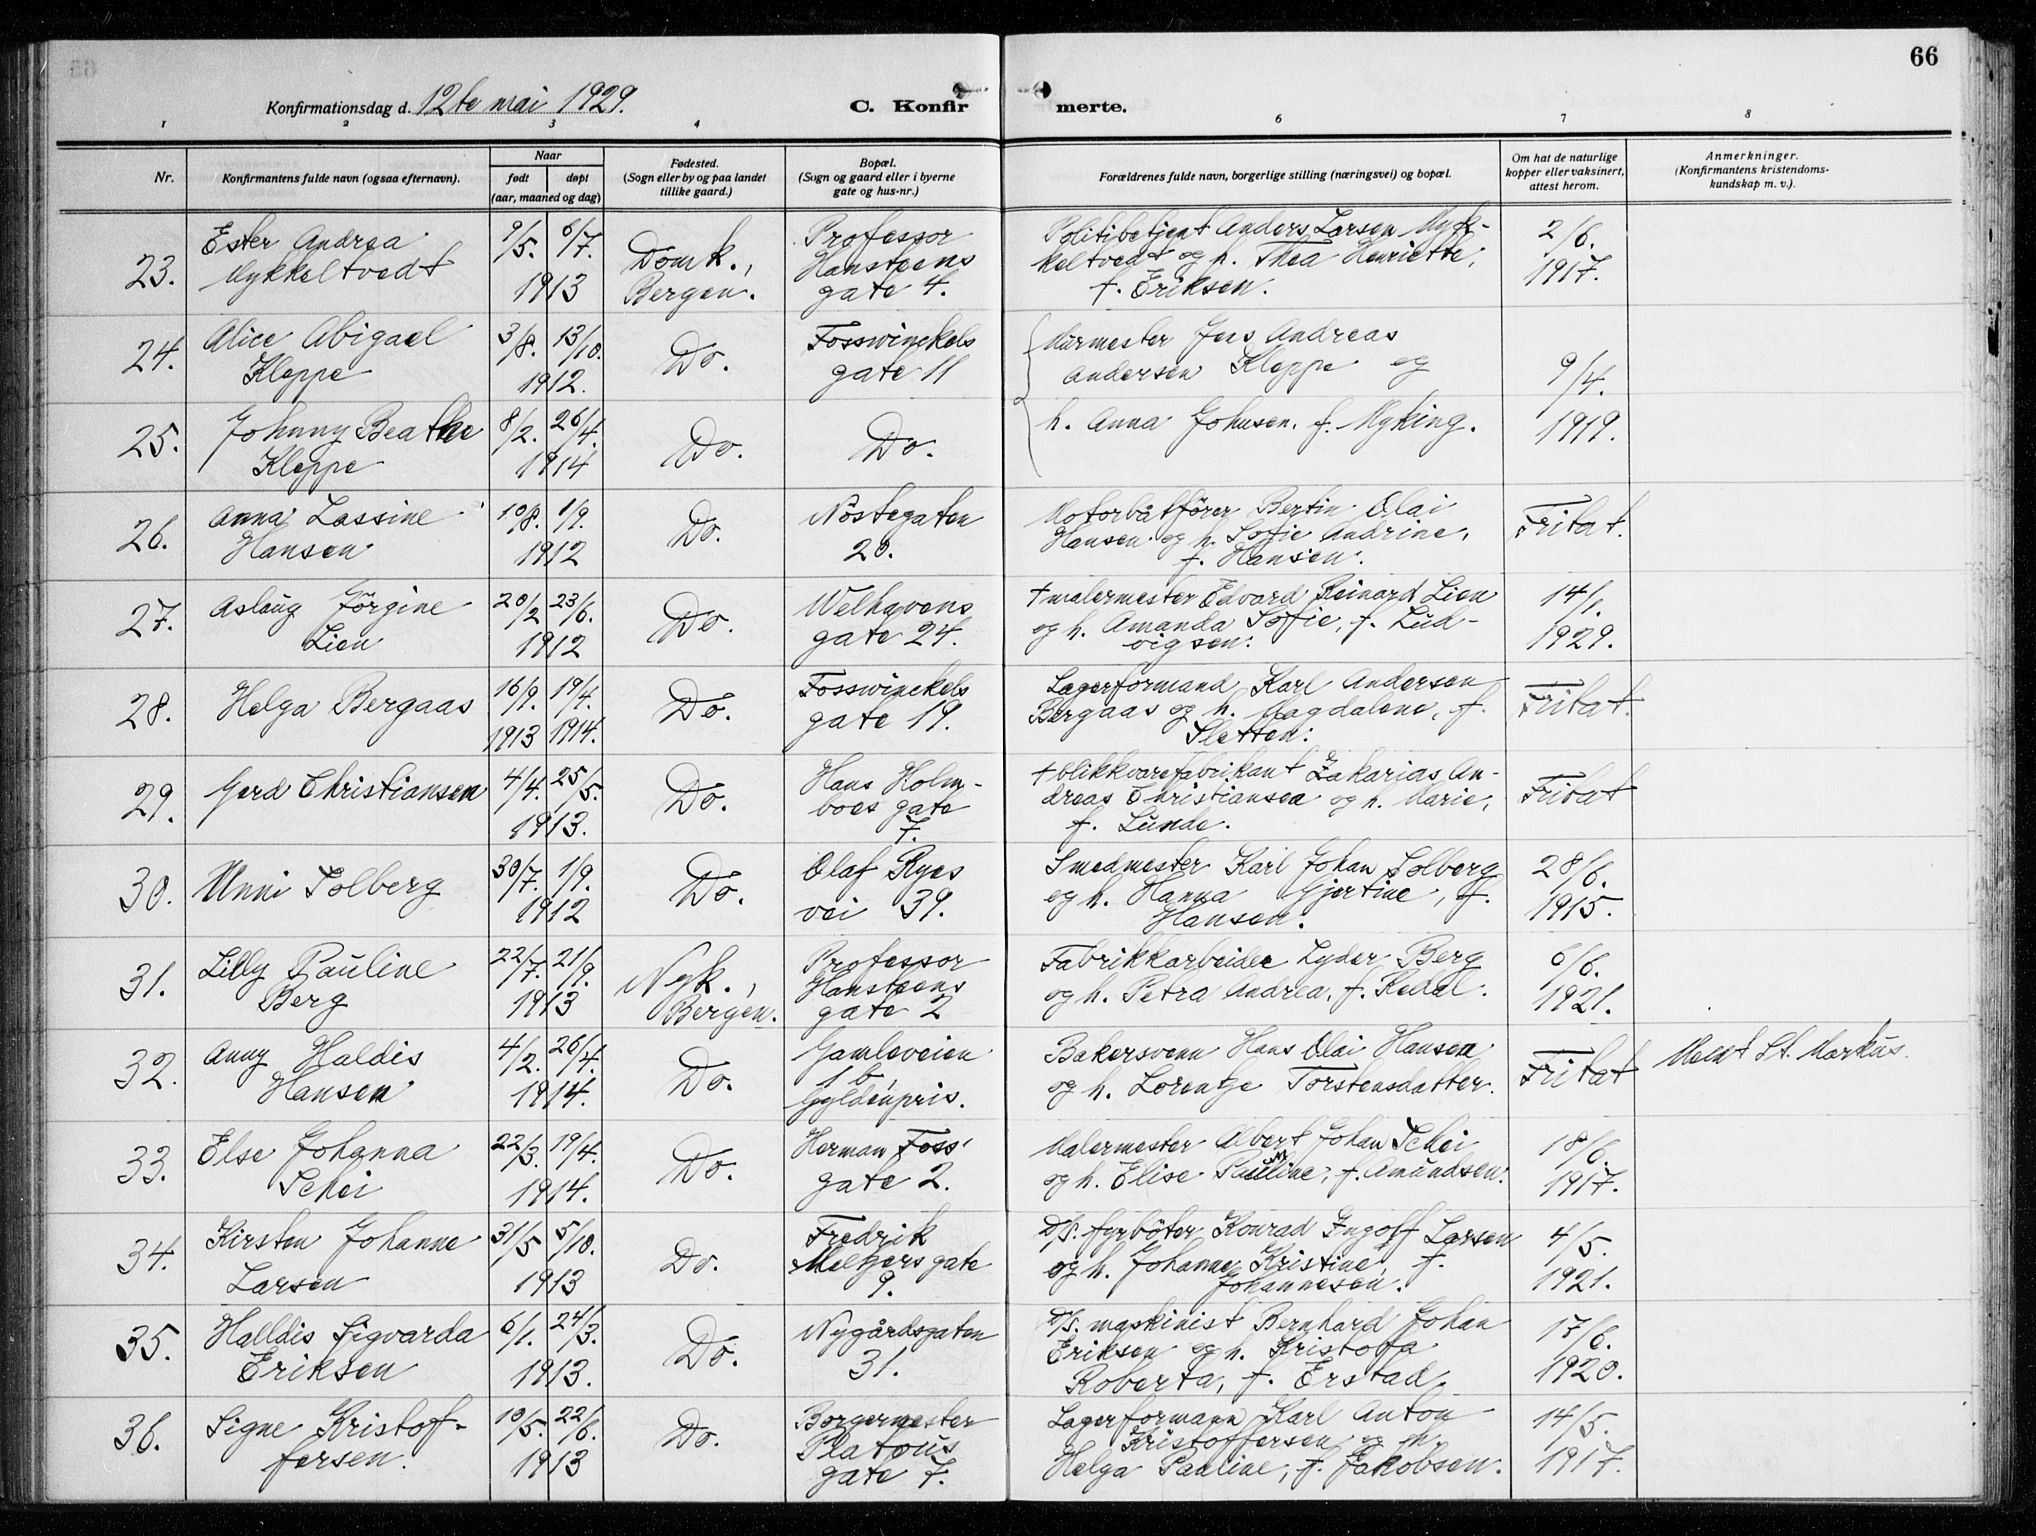 66
Konfirmationsdag d. 12te mai 1929.
C. Konfirmerte.
1 2 3 4 6 7 8
Nr.
Konfirmantens fulde navn (ogsaa efternavn).
Naar
født
døpt
(aar, maaned og dag)
Fødested.
(Sogn eller by og paa landet
tillike gaard.)
Bopæl.
(Sogn og gaard eller i byerne
gate og hus-nr.)
Forældrenes fulde navn, borgerlige stilling (næringsvei) og bopæl.
Om hat de naturlige
kopper eller vaksinert,
attest herom.
Anmerkninger.
(Konfirmantens kristendoms-
kundskap m. v.).
23.
Ester Andrea
Mykkeltvedt
9/5. 6/7.
1913
Domk.,
Bergen.
Professor
Hansteens
gate 4.
Politibetjent Anders Larsen Myk-
keltvedt og h. Thea Henriette,
f. Eriksen.
2/6.
1917.
24.
Alice Abigael
Kleppe
3/8. 13/10.
1912.
Do.
Fosswinckels
gate 11
Murmester Jens Andreas
Andersen Kleppe og
9/4.
25.
Johnny Beathe
Kleppe
8/2. 26/4.
1914
Do.
Do.
h. Anna Johnsen, f. Myking.
1919.
26.
Anna Lassine
Hansen
10/8. 1/9.
1912
Do.
Nöstegaten
20.
Motorbåtförer Bertin Olai
Hansen og h. Sofie Andrine,
f. Hansen.
Fritat.
27.
Aslaug Jörgine
Lien
20/2 23/6.
1912
Do.
Welhavens
gate 24.
† malermester Edvard Reinard Lien
og h. Amanda Sofie, f. Lud-
vigsen.
14/1.
1929.
28.
Helga Bergaas
16/9. 19/4.
1913 1914.
Do.
Fosswinckels
gate 19.
Lagerformand Karl Andersen
Bergaas og h. Magdalene, f.
Sletten.
Fritat.
29.
Gerd Christiansen
4/4. 25/5.
1913.
Do.
Hans Holm-
boes gate
7.
† blikkvarefabrikant Zakarias An-
dreas Christiansen og h. Marie,
f. Lunde.
Fritat
30.
Unni Solberg
30/7. 1/9.
1912
Do.
Olaf Ryes
vei 39.
Smedmester Karl Johan Solberg
og h. Hanna Gjertine, f.
Hansen.
28/6.
1915.
31.
Lilly Pauline
Berg
22/7. 21/9.
1913
Nyk.,
Bergen.
Professor
Hansteens
gate 2
Fabrikkarbeider Lyder Berg
og h. Petra Andrea, f. Kedel.
6/6.
1921.
32.
Anny Haldis
Hansen
4/2. 26/4.
1914.
Do.
Gamleveien
1 b,
Gyldenpris.
Bakersvenn Hans Olai Hansen
og h. Lorentze Torstensdatter.
Fritat
Meldt St. Markus.
33.
Else Johanna
Schei
22/3. 19/4.
1914.
Do.
Herman Foss'
gate 2.
Malermester Albert Johan Schei
og h. Elise Pauline, f. Amundsen.
18/6.
1917.
34.
Kirsten Johanne
Larsen
31/5 5/10.
1913
Do.
Fredrik
Meltzers gate
9.
D/S. fyrböter Konrad Ingolf Larsen
og h. Johanne Kristine, f.
Johannesen.
4/5.
1921.
35.
Halldis Sigvarda
Eriksen
6/1. 24/3.
1913.
Do.
Nygårdsgaten
31.
D/S. maskinist Bernhard Johan
Eriksen og h. Kristofa
Roberta, f. Erstad.
17/6.
1920.
36.
Signe Kristof-
fersen.
10/5. 22/6.
1913
Do.
Borgermester
Platous
gate 7.
Lagerformann Karl Anton
Kristoffersen og h.
Helga Pauline, f. Jakobsen.
14/5.
1917.